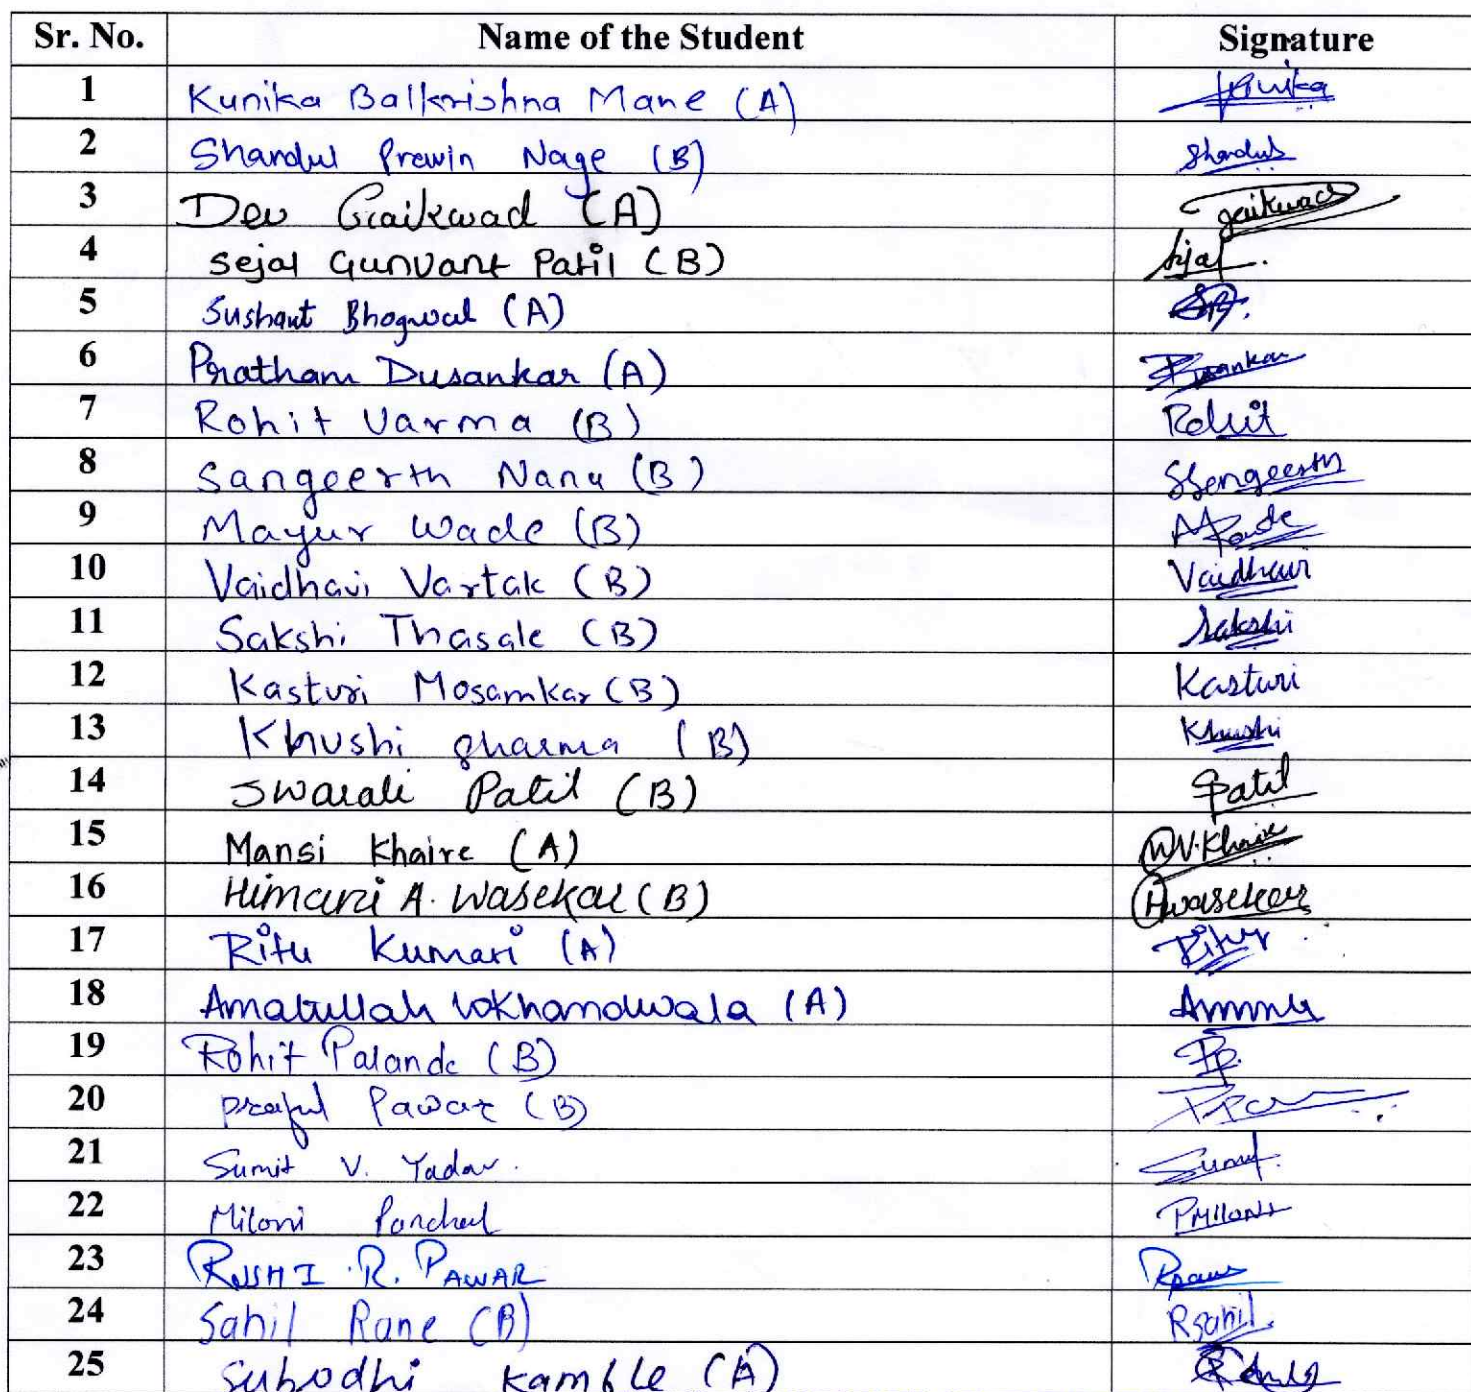 Sr. No. Name of the Student Signature
1 Kunika Balkrishna Mane (A) Kunika
2 Shardul Pravin Nage (B) Shardul
3 Dev Gaikwad (A) Gaikwad
4 Sejal Gunvant Patil (B) Sejal
5 Sushant Bhogwal (A)
6 Pratham Dusankar (A)
7 Rohit Varma (B) Rohit
8 Sangeerth Nanu (B) SSangeerth
9 Mayur Wade (B)
10 Vaidhavi Vartak (B) Vaidhavi
11 Sakshi Thasale (B) Sakshi
12 Kasturi Mosamkar (B) Kasturi
13 Khushi Sharma (B) Khushi
14 Swarali Patil (B) SPatil
15 Mansi Khaire (A) M.V.Khaire
16 Himani A. Wasekar (B) HWasekar
17 Ritu Kumari (A) Ritu
18 Amatullah Lokhandwala (A)
19 Rohit Palande (B) RP.
20 Praful Pawar (B)
21 Sumit V. Yadav. Sumit.
22 Miloni Panchal PMiloni
23 RUSHI .R. PAWAR
24 Sahil Rane (B) RSahil.
25 Subodhi Kamble (A)